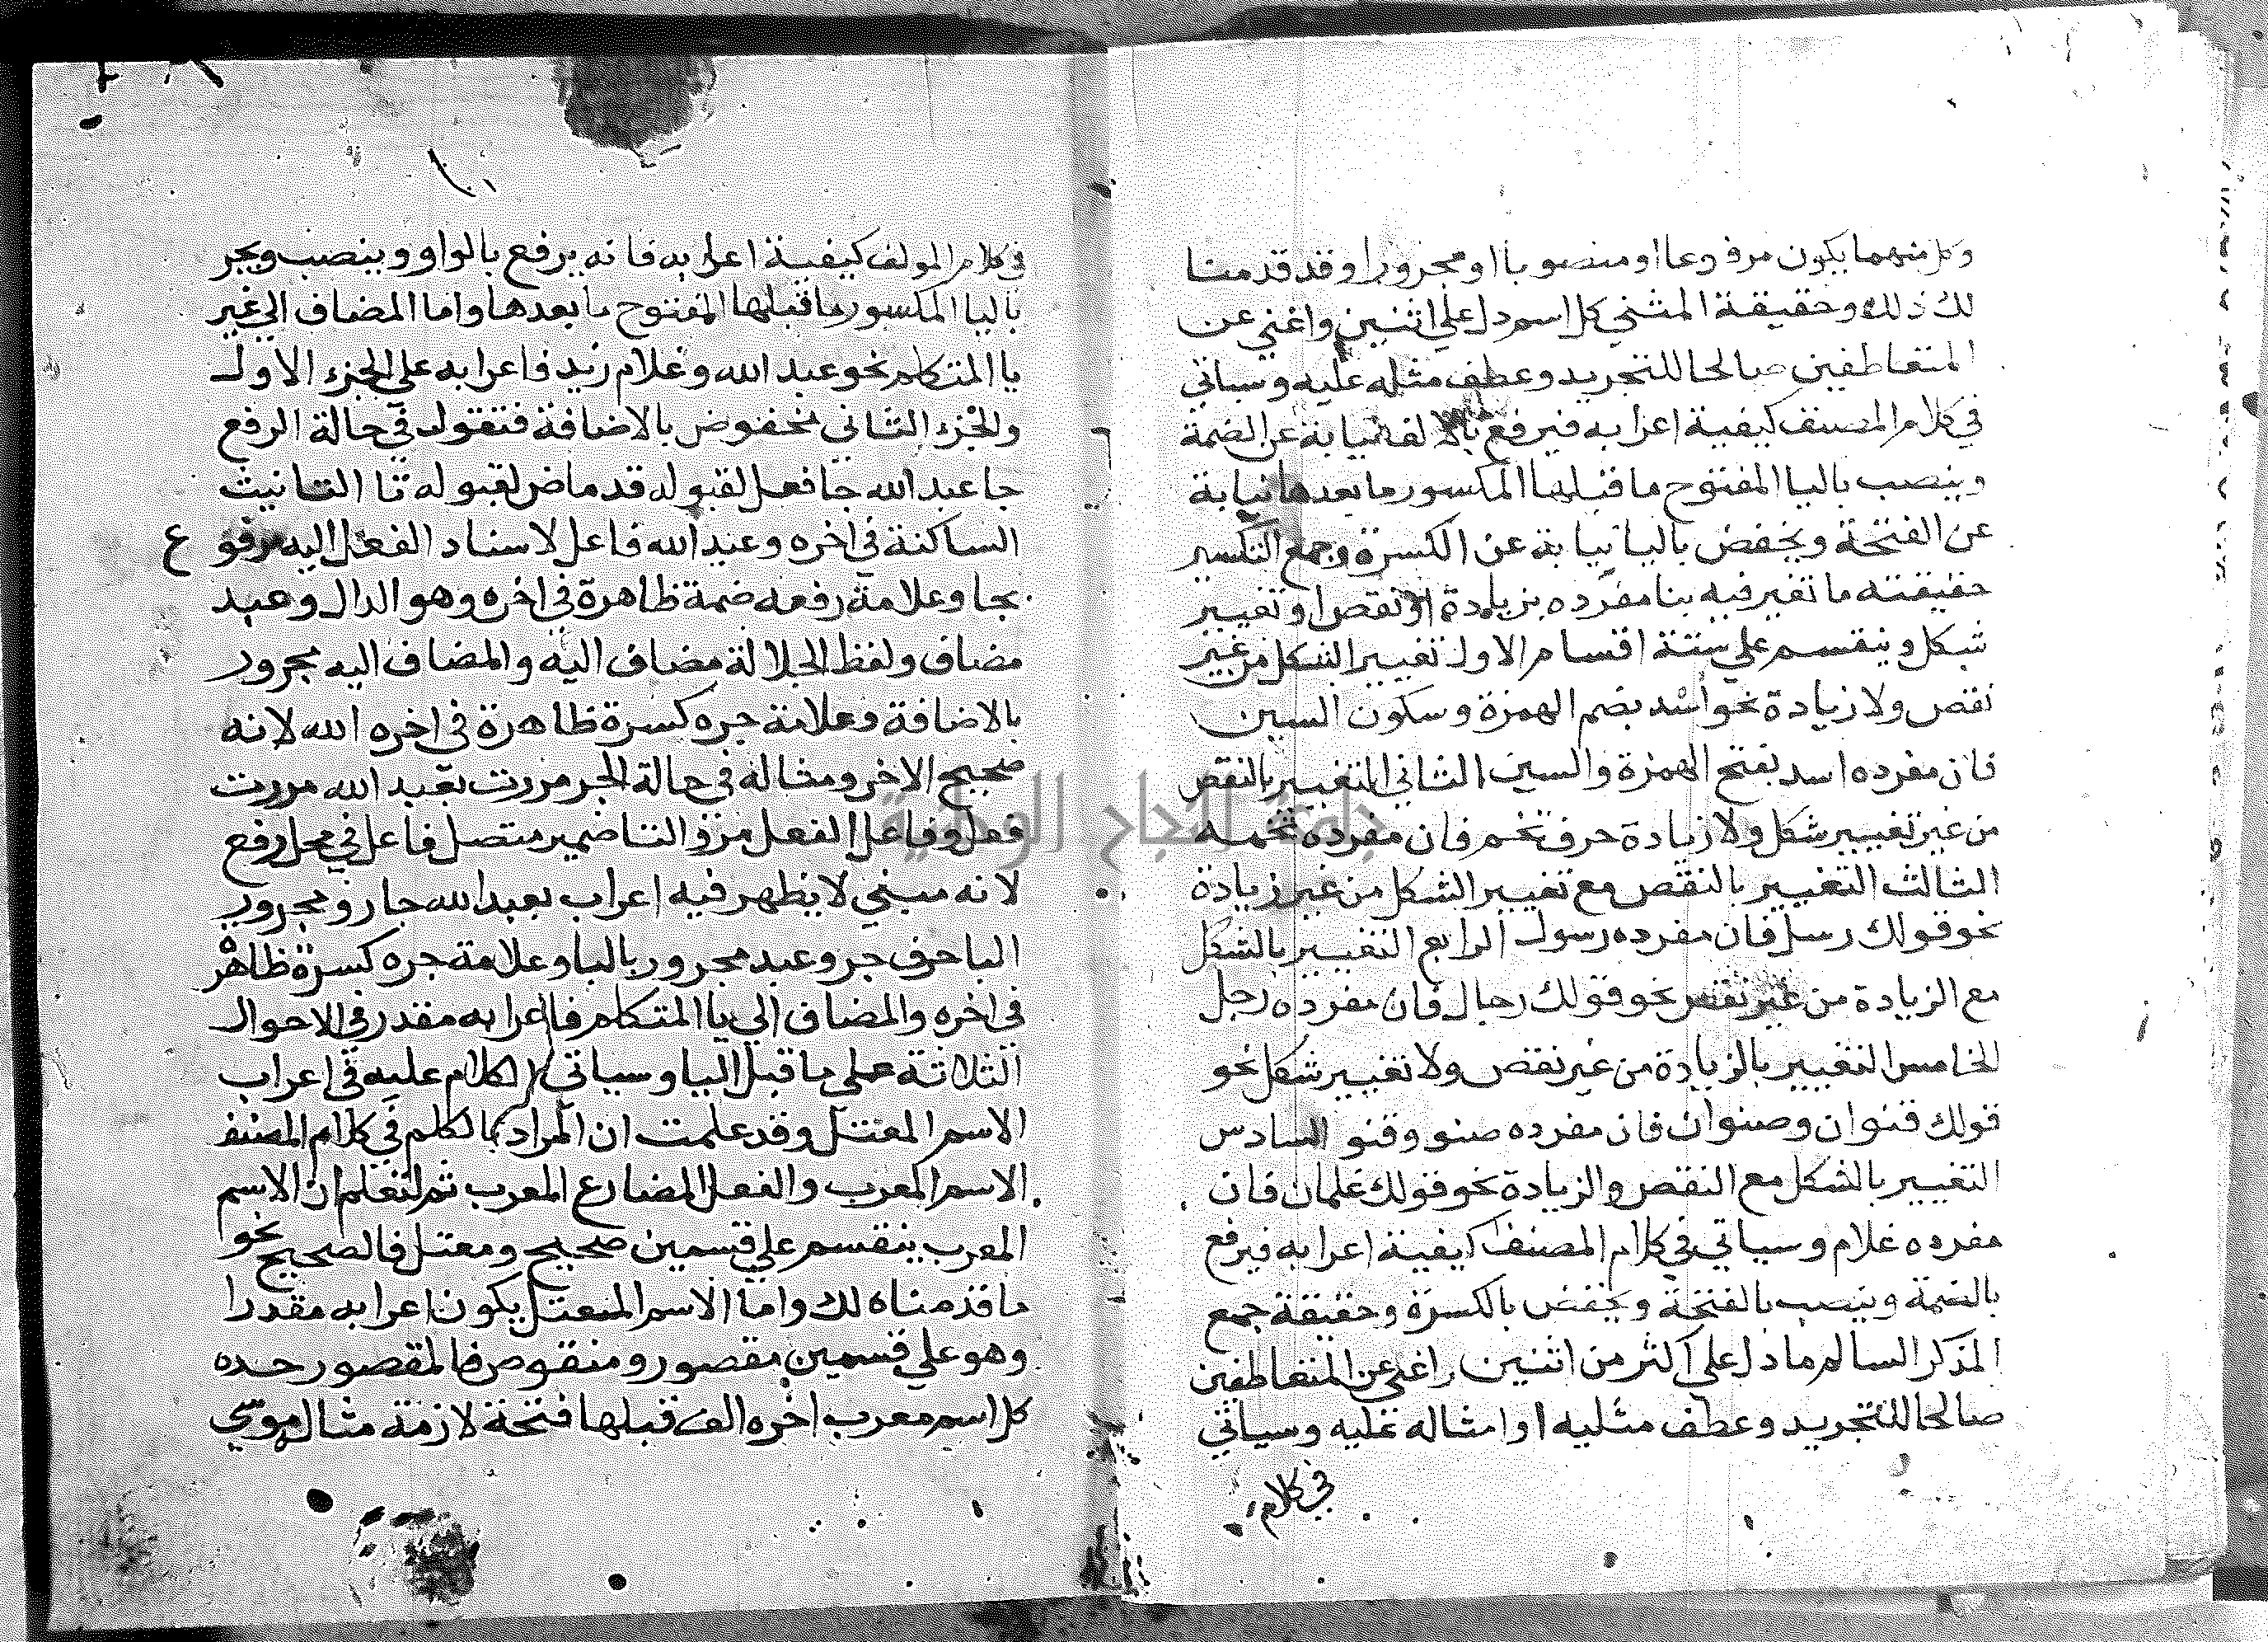 وكل منهما يكون مرفوعا او منصوبا او مجرورا وقد قدمنا
لك ذلك وحقيقة المثني كل اسم دل علي اثنين واغني عن
المتعاطفين صالحا للتجريد وعطف مثله عليه وسياتي
في كلام المصنف كيفية اعرابه فيرفع بالالف نيابة عن الضمة
وينصب باليا المفتوح ما قبلها المكسور ما بعدها نيابة
عن الفتحة ويخفض باليا نيابة عن الكسرة وجمع التكسير
حقيقته ما تغير فيه بنا مفرده بزيادة او نقص او تغيير
شكل وينقسم علي ستة اقسام الاول تغيير الشكل من غير
نقص ولا زيادة نحو اسد بضم الهمزة وسكون السين
فان مفرده اسد بفتح الهمزة والسين الثاني التغيير بالنقص
من غير تغيير شكل ولا زيادة حرف تخم فان مفرده تخمة
الثالث التغيير بالنقص مع تغيير الشكل من غير زيادة
نحو قولك رسل فان مفرده رسول الرابع التغيير بالشكل
مع الزيادة من غير نقص نحو قولك رجال فان مفرده رجل
الخامس التغيير بالزيادة من غير نقص ولا تغيير شكل نحو
قولك قنوان وصنوان فان مفرده صنو وقنو السادس
التغيير بالشكل مع النقص والزيادة نحو قولك غلمان فان
مفرده غلام وسياتي في كلام المصنف كيفية اعرابه فيرفع
بالضمة وينصب بالفتحة ويخفض بالكسرة وحقيقة جمع
المذكر السالم ما دل علي اكثر من اثنين واغني عن المتعاطفين
صالحا للتجريد وعطف مثليه او امثاله عليه وسياتي
في كلام
في كلام المولف كيفية اعرابه فانه يرفع بالواو وينصب ويجر
باليا المكسور ما قبلها المفتوح ما بعدها واما المضاف الي غير
يا المتكلم نحو عبد الله وغلام زيد فاعرابه علي الجزء الاول
والجزء الثاني مخفوض بالاضافة فتقول في حالة الرفع
جا عبد الله جا فعل لقبوله قد ماض لقبوله تا التانيث
الساكنة في اخره وعبد الله فاعل لاسناد الفعل اليه مرفوع
بجا وعلامة رفعه ضمة ظاهرة في اخره وهو الدال وعبد
مضاف ولفظ الجلالة مضاف اليه والمضاف اليه مجرور
بالاضافة وعلامة جره كسرة ظاهرة في اخره الله لانه
صحيح الاخر ومثاله في حالة الجر مررت بعبد الله مررت
فعل وفاعل الفعل مر والتا ضمير متصل فاعل في محل رفع
لانه مبني لا يظهر فيه اعراب بعبد الله جار ومجرور
البا حرف جر وعبد مجرور بالبا وعلامة جره كسرة ظاهرة
في اخره والمضاف الي يا المتكلم فاعرابه مقدر في الاحوال
الثلاثة علي ما قبل اليا وسياتي الكلام عليه في اعراب
الاسم المعتل وقد علمت ان المراد بالكلم في كلام المصنف
الاسم المعرب والفعل المضارع المعرب ثم لتعلم ان الاسم
المعرب ينقسم علي قسمين صحيح ومعتل فالصحيح نحو
ما قدمناه لك واما الاسم المعتل يكون اعرابه مقدرا
وهو علي قسمين مقصور ومنقوص فالمقصور حده
كل اسم معرب اخره الف قبلها فتحة لازمة مثاله موسي
جامعة النجاح الوطنية